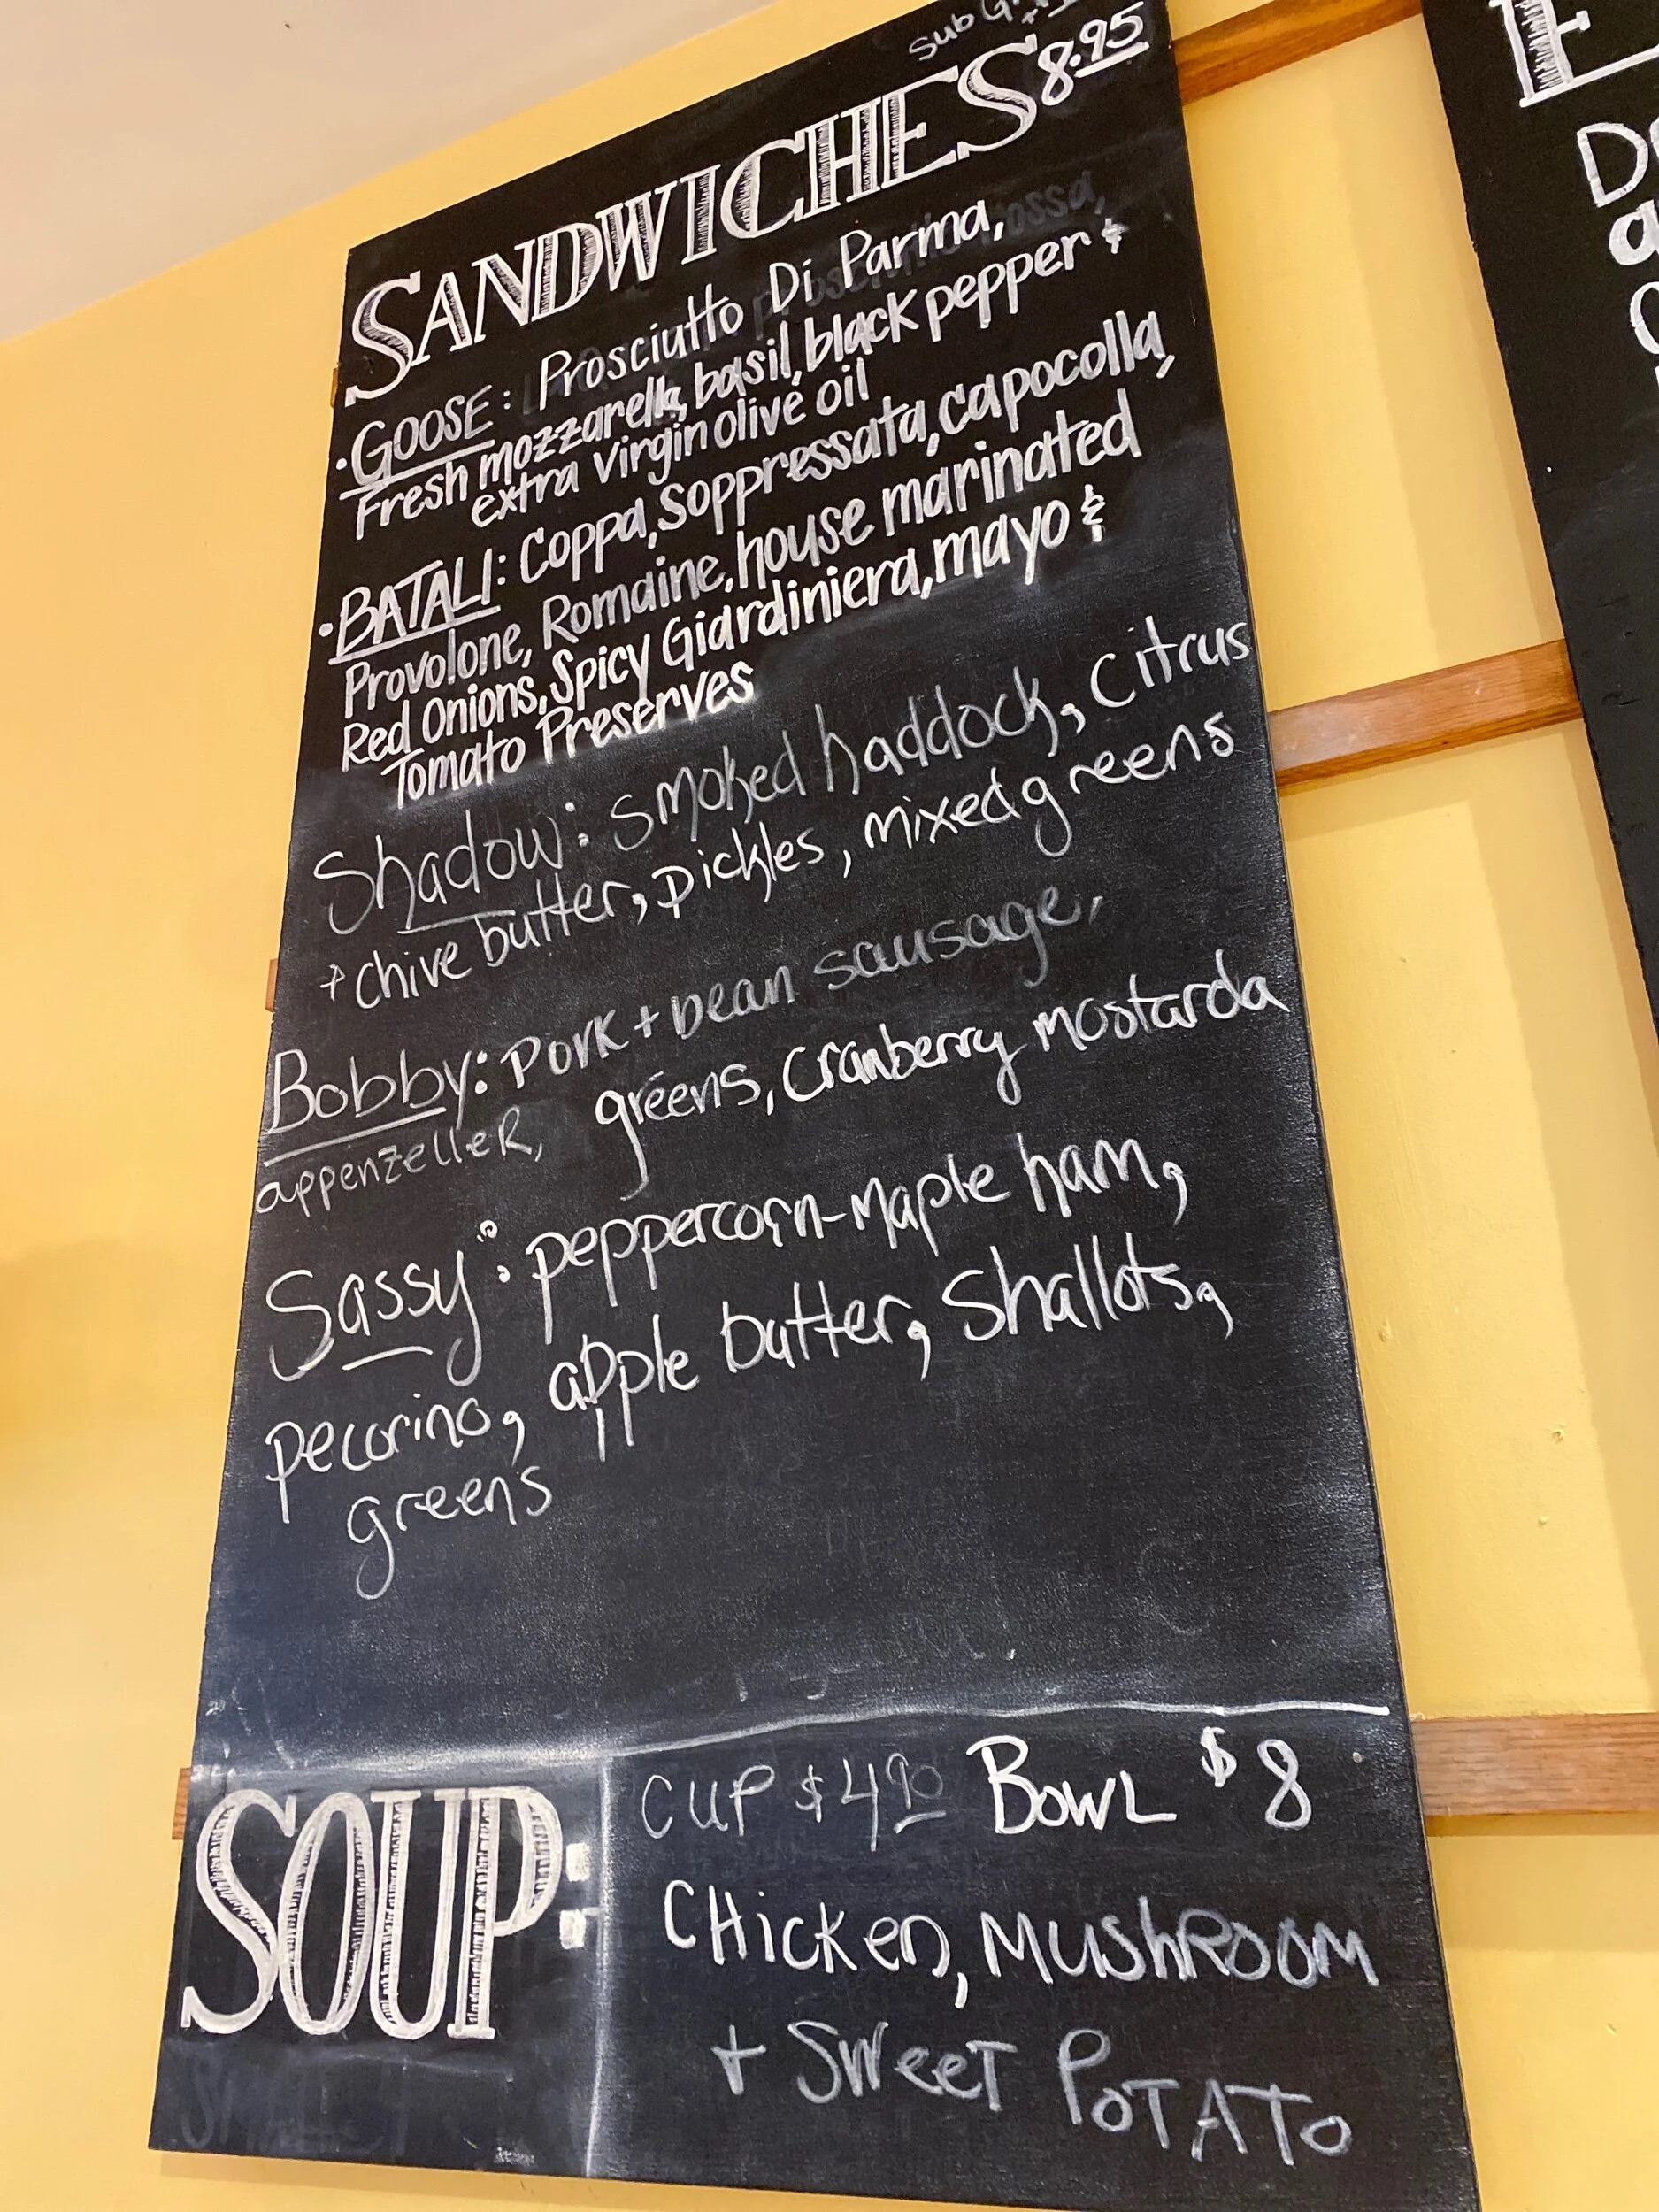 Sub
SANDWICHES 8.95
• GOOSE: Prosciutto Di Parma,
Fresh mozzarella, basil, black pepper &
extra virgin olive oil
• BATALI: Coppa, Soppressata, capocolla,
Provolone, Romaine, house marinated
Red Onions, Spicy Giardiniera, mayo &
Tomato Preserves
Shadow: smoked haddock, citrus
+ chive butter, pickles, mixed greens
Bobby: Pork + bean sausage,
appenzeller, greens, cranberry mostarda
Sassy: peppercorn-maple ham,
pecorino, apple butter, shallots,
greens
SOUP:
CUP $4.90 BOWL $8
CHicKen, MUShROOM
+ SWeeT PoTATo